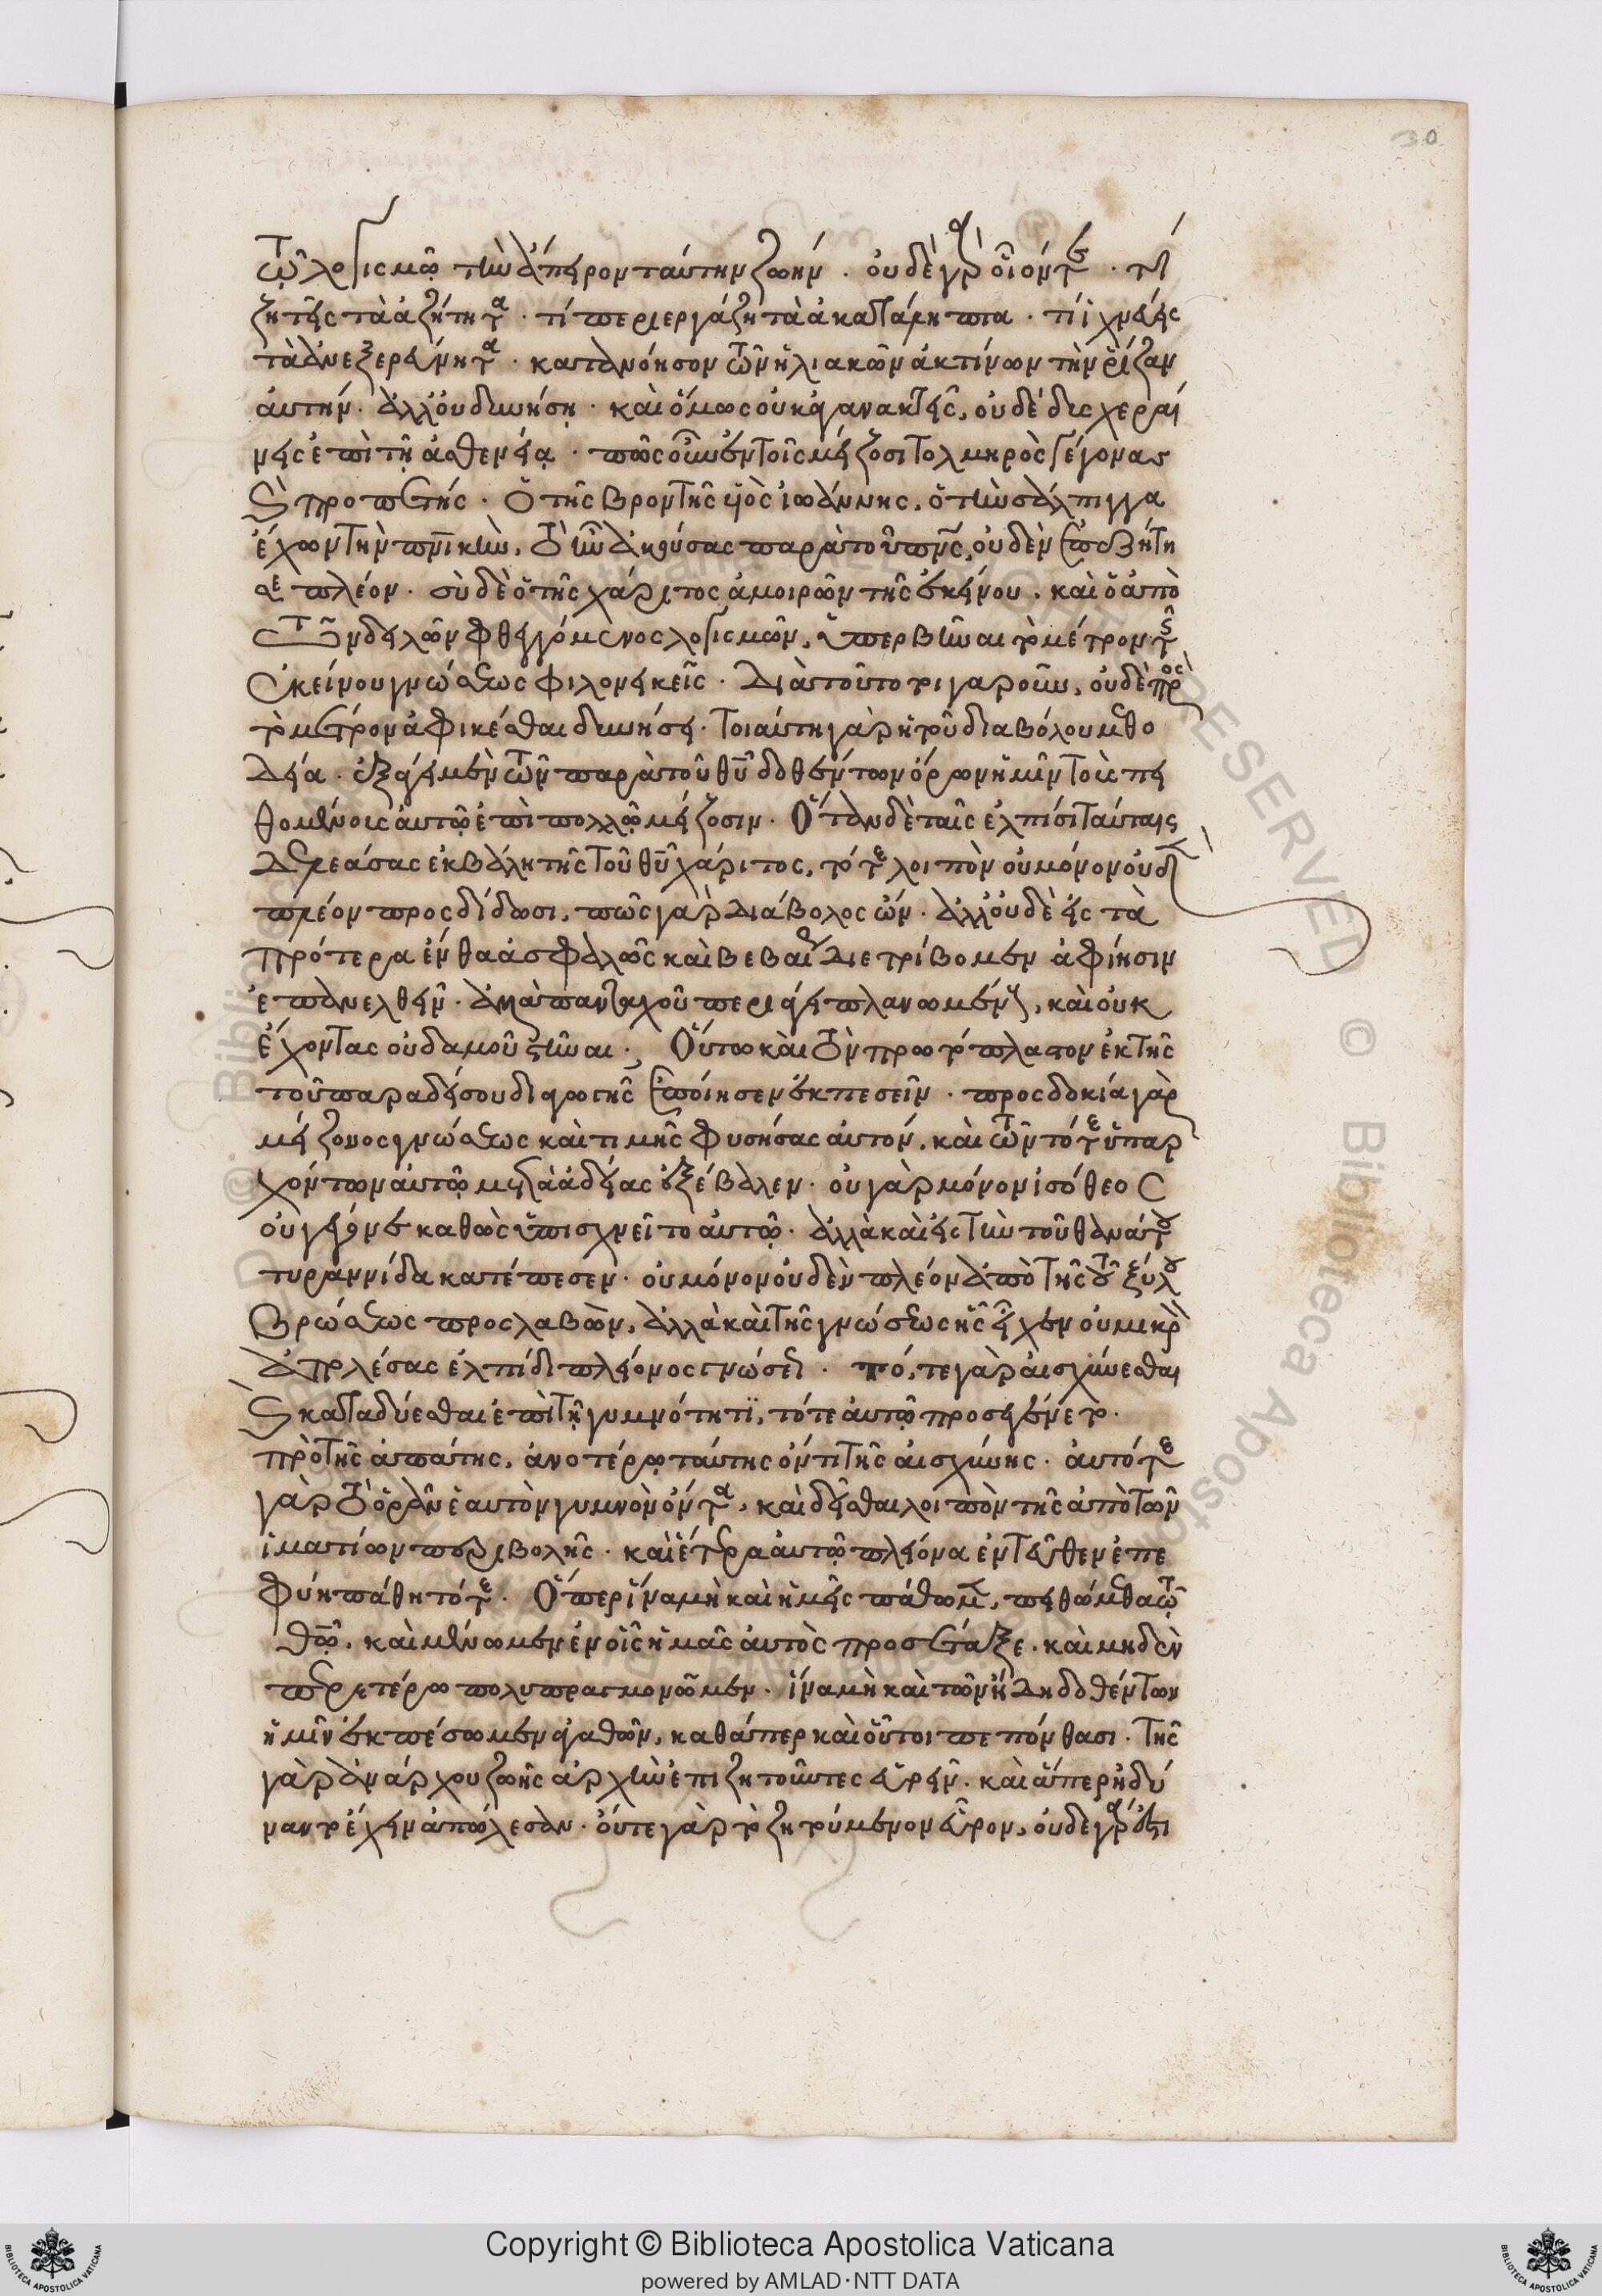 30
τῷ λογισμῷ τὴν ἄπειρον ταύτην ζωήν. οὐδὲ γὰρ οἷόν τε. τί
ζητεῖς τὰ ἀζήτητα. τί περιεργάζη τὰ ἀκατάληπτα. τί ἰχνεύεις
τὰ ἀνεξερεύνητα. κατανόησον τῶν ἡλιακῶν ἀκτίνων τὴν ῥίζαν
αὐτήν. ἀλλ' οὐ δυνήσῃ. καὶ ὅμως οὐκ ἀγανακτεῖς, οὐδὲ δυσχεραί
νεις ἐπὶ τῇ ἀσθενείᾳ. πῶς οὖν ἐν τοῖς μείζοσι τολμηρὸς γέγονας
καὶ προπετής. ὁ τῆς βροντῆς υἱὸς ἰωάννης, ὁ τὴν σάλπιγγα
ἔχων τὴν πνικὴν, τὸ ἦν ἀκούσας παρὰ τοῦ πνς, οὐδὲν ἐπεζήτη
σε πλέον. σὺ δὲ ὁ τῆς χάριτος ἀμοιρῶν τῆς ἐκείνου, καὶ ὁ ἀπὸ
τῶν δειλῶν φθεγγόμενος λογισμῶν, ὑπερβῆναι τὸ μέτρον τῆς
ἐκείνου γνώσεως φιλονεικεῖς. Διὰ τοῦτο τοιγαροῦν, οὐδὲ πρὸς
τὸ μέτρον ἀφικέσθαι δυνήσει. τοιαύτη γὰρ ἡ τοῦ διαβόλου μεθο
δεία. ἐξάγει μὲν τῶν παρὰ τοῦ θυ δοθέντων ὅρων ἡμῖν τοὺς πει
θομένοις αὐτῷ ἐπὶ πολλῷ μείζοσιν. Ὅταν δὲ ταῖς ἐλπίσι ταύταις
δελεάσας ἐκβάλη τῆς τοῦ θυ χάριτος, τότε λοιπὸν οὐ μόνον οὐδὲν
πλέον προσδίδωσι, πῶς γὰρ διάβολος ὤν. ἀλλ' οὐδὲ εἰς τὰ
πρότερα ἔνθα ἀσφαλῶς καὶ βεβαίως διετρίβομεν ἀφίησιν
ἐπανελθεῖν. ἀλλὰ πανταχοῦ περιάγει πλανωμένους, καὶ οὐκ
ἔχοντας οὐδαμοῦ στῆναι. Οὕτω καὶ τὸν πρωτόπλαστον ἐκ τῆς
τοῦ παραδείσου διαγωγῆς ἐποίησεν ἐκπεσεῖν. προσδοκία γὰρ
μείζονος γνώσεως καὶ τιμῆς φυσήσας αὐτόν, καὶ τῶν τότε ὑπαρ
χόντων αὐτῷ μετὰ ἀδείας ἐξέβαλεν. οὐ γὰρ μόνον ἰσόθεος
οὐ γέγονε καθὼς ὑπισχνεῖτο αὐτῷ. ἀλλὰ καὶ εἰς τὴν τοῦ θανάτου
τυραννίδα κατέπεσεν. οὐ μόνον οὐδὲν πλέον ἀπὸ τῆς τοῦ ξύλου
βρώσεως προσλαβὼν, ἀλλὰ καὶ τῆς γνώσεως ἧς εἶχεν οὐ μικρὸν
ἀπολέσας ἐλπίδι πλείονος γνώσεως. τότε γὰρ αἰσχύνεσθαι
καὶ καταδύεσθαι ἐπὶ τῇ γυμνότητι, τότε αὐτῷ προσεγένετο.
πρὸ τῆς ἀπάτης, ἀνοτέρῳ ταύτης ὄντι τῆς αἰσχύνης. αὐτό τε
γὰρ τὸ ὁρᾶν ἑαυτὸν γυμνὸν ὄντα, καὶ δεῖσθαι λοιπὸν τῆς ἀπὸ τῶν
ἱματίων περιβολῆς. καὶ ἕτερα αὐτῷ πλείονα ἐντεῦθεν ἐπε
φύη πάθη τότε. Ὅπερ ἵνα μὴ καὶ ἡμεῖς πάθωμεν, πειθώμεθα τῷ
θῷ, καὶ μένωμεν ἐν οἷς ἡμᾶς αὐτὸς προσέταξε. καὶ μηδὲν
περαιτέρω πολυπραγμονῶμεν. ἵνα μὴ καὶ τῶν ἤδη δοθέντων
ἡμῖν ἐκπέσωμεν ἀγαθῶν, καθάπερ καὶ οὗτοι πεπόνθασι. τῆς
γὰρ ἀνάρχου ζωῆς ἀρχὴν ἐπιζητοῦντες εὑρεῖν. καὶ ἅπερ ἠδύ
ναντο ἔχειν ἀπώλεσαν. οὔτε γὰρ τὸ ζητούμενον εὗρον, οὐδὲ γάρ ἐστι
Copyright © Biblioteca Apostolica Vaticana
powered by AMLAD·NTT DATA